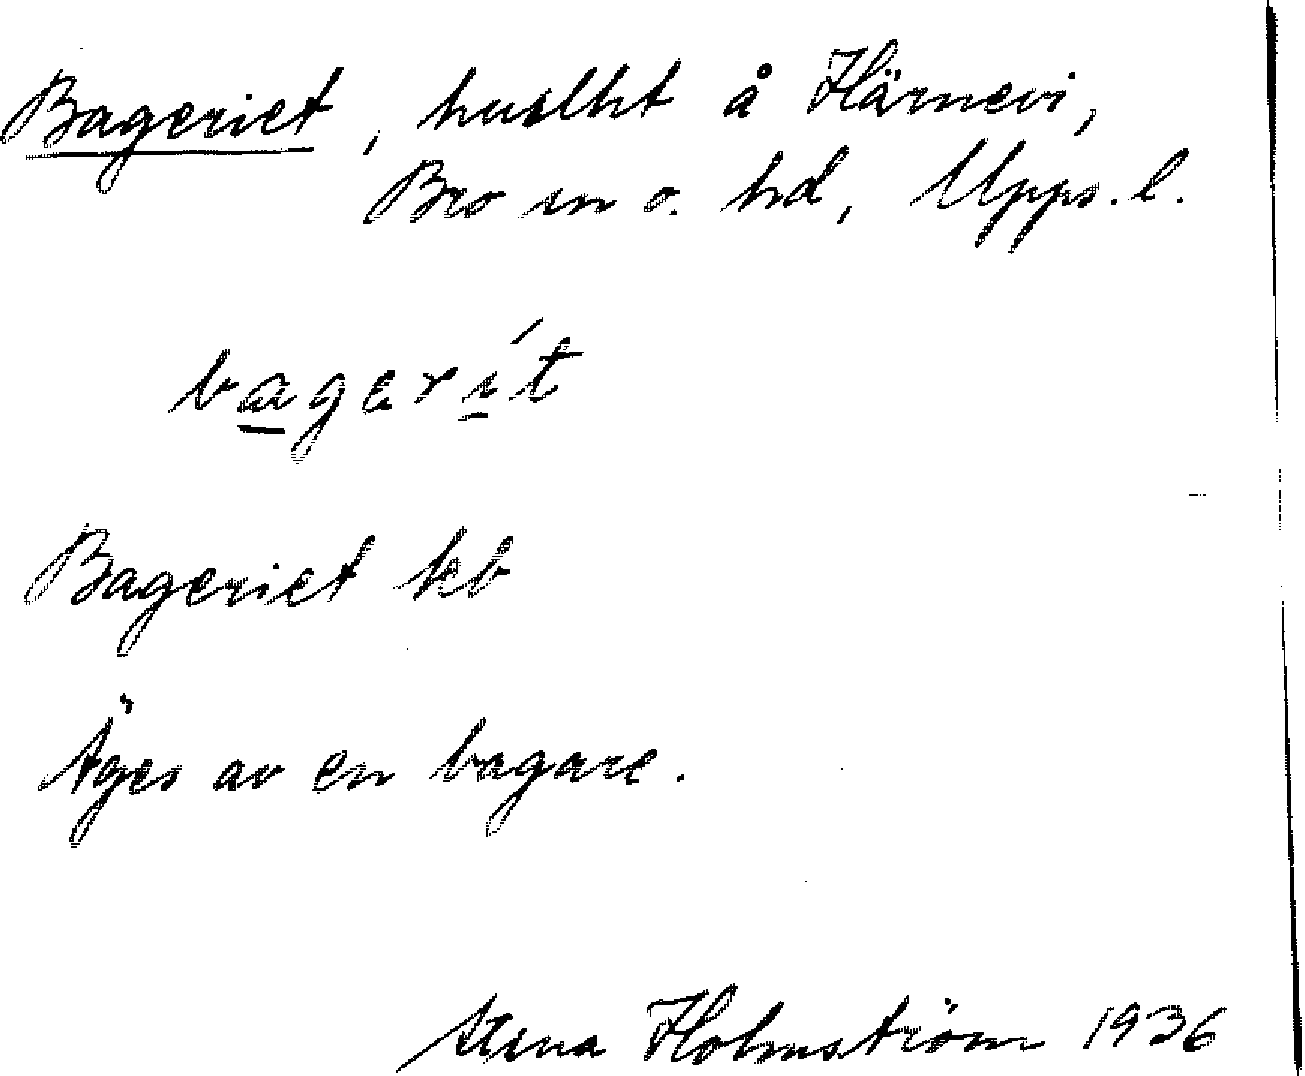 Bageriet, huslht å Härnevi,
Bro sn o. hd, Upps. l.
bagerít
Bageriet kb
Äges av en bagare.
Stina Holmström 1936